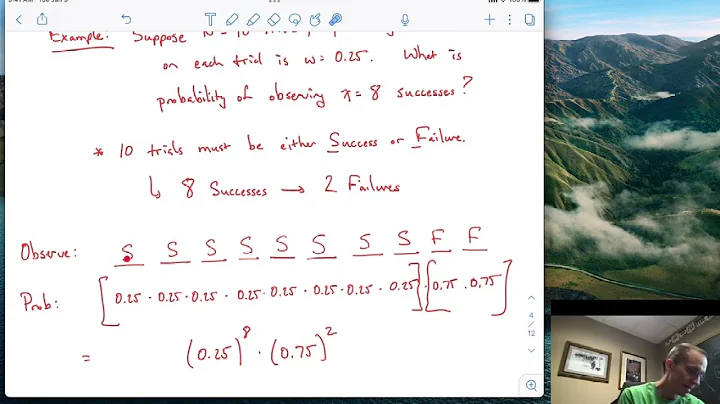 Example: Suppose
on each trial is w = 0.25. What is
probability of observing x = 8 successes?
* 10 trials must be either Success or Failure.
↳ 8 Successes → 2 Failures
Observe: S S S S S S S S F F
Prob: [0.25 · 0.25 · 0.25 · 0.25 · 0.25 · 0.25 · 0.25 · 0.25] · [0.75 · 0.75]
= (0.25)^8 · (0.75)^2
4
/
12